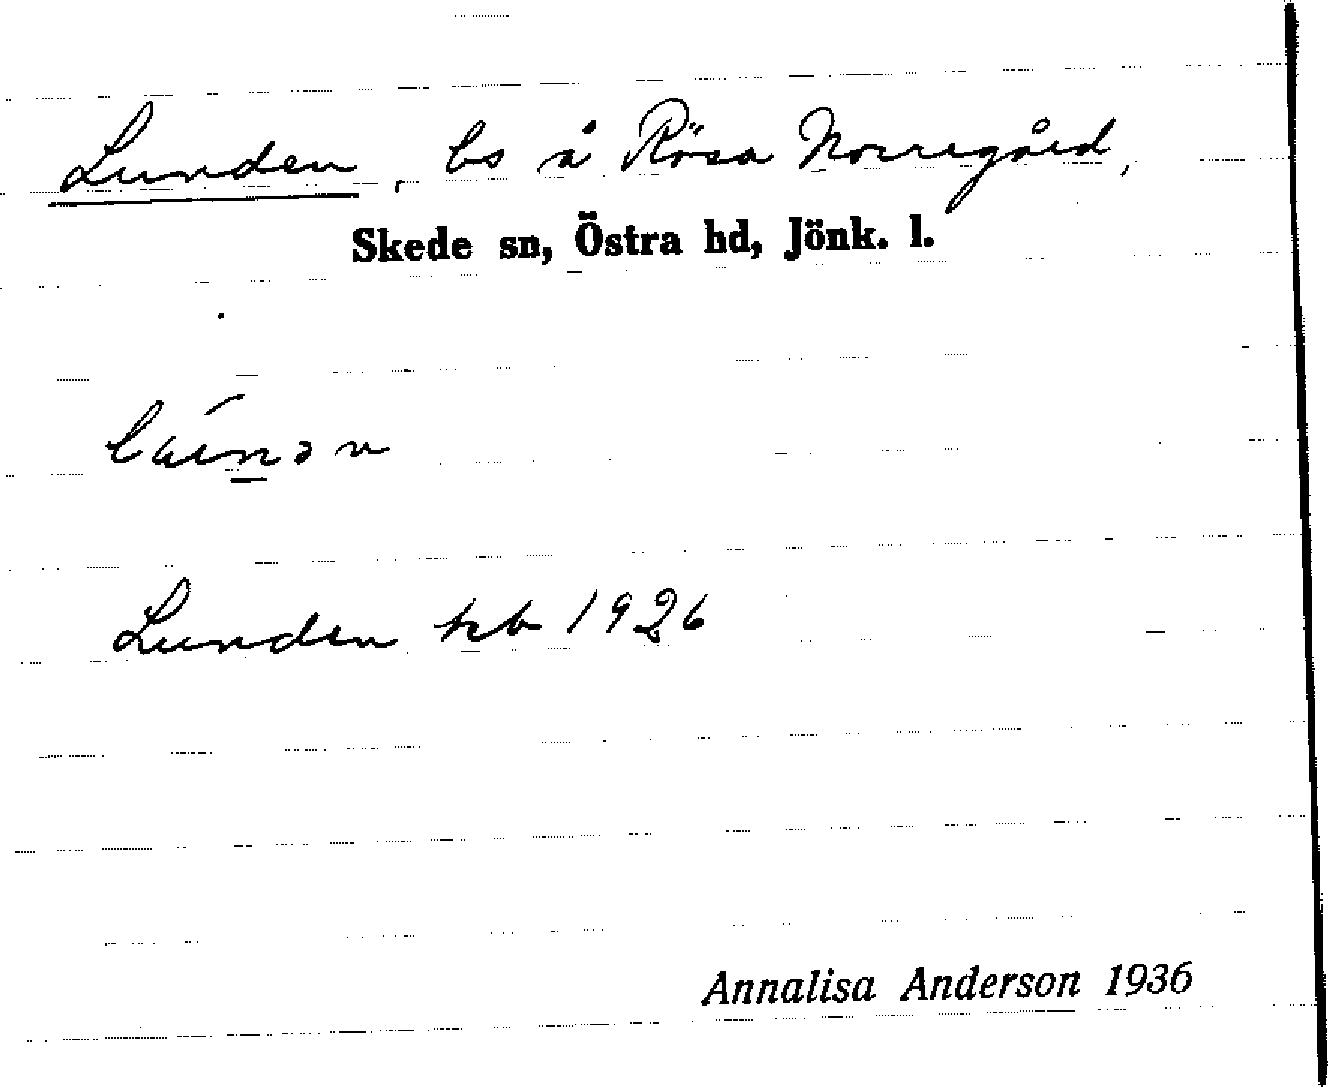 Lunden, bs å Rösa Norregård,
Skede sn, Östra hd, Jönk. l.
Lunden kb 1926
Annalisa Anderson 1936